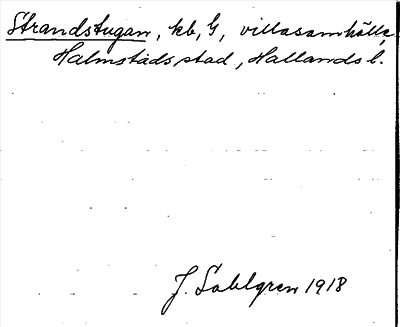 Strandstugan, kb, G, villasamhälle,
Halmstads stad, Hallands l.
J. Sahlgren 1918